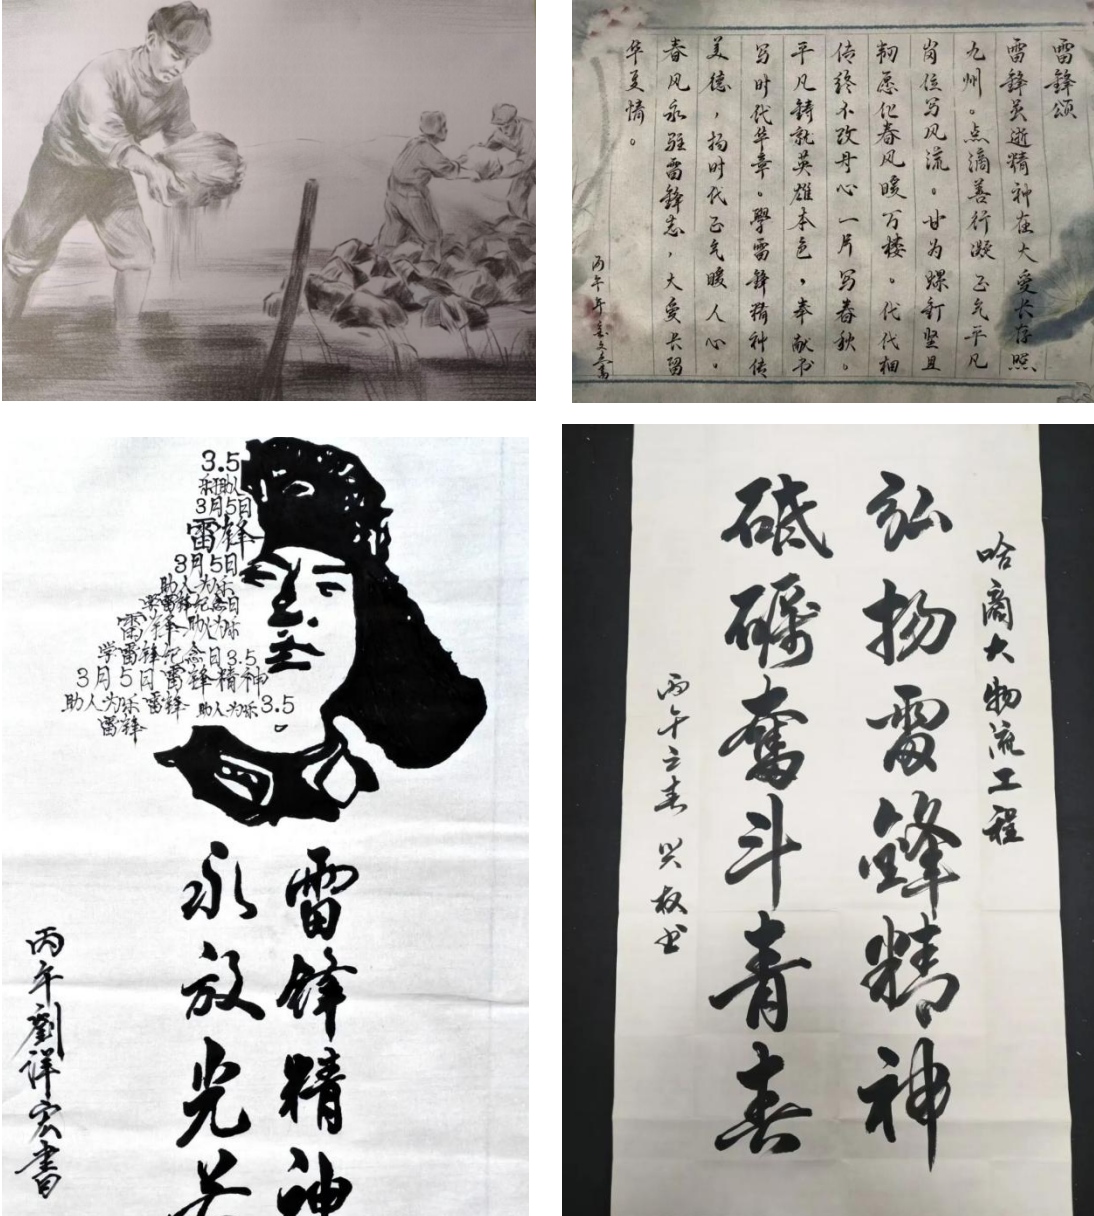 雷鋒颂
雷鋒虽逝精神在大爱长存照
九州。点滴善行凝正气平凡
岗位写风流。甘为螺钉坚且
韧愿化春风暖万楼。代代相
传终不改丹心一片写春秋。
平凡铸就英雄本色，奉献书
写时代华章。學雷鋒精神传
美德，扬时代正气暖人心。
春风永驻雷鋒志，大爱长留
华夏情。
丙午年
3.5
乐助人
3月5日
雷锋
3月5日
助人为乐
学雷锋纪念日
雷锋 助人为乐
学雷锋纪念日3.5
3月5日雷锋精神
助人为乐 雷锋 助人为乐3.5
雷锋
雷锋精神
永放光芒
丙午劉祥宏書
哈商大物流工程
弘扬雷鋒精神
砥砺奮斗青春
丙午立春 权书